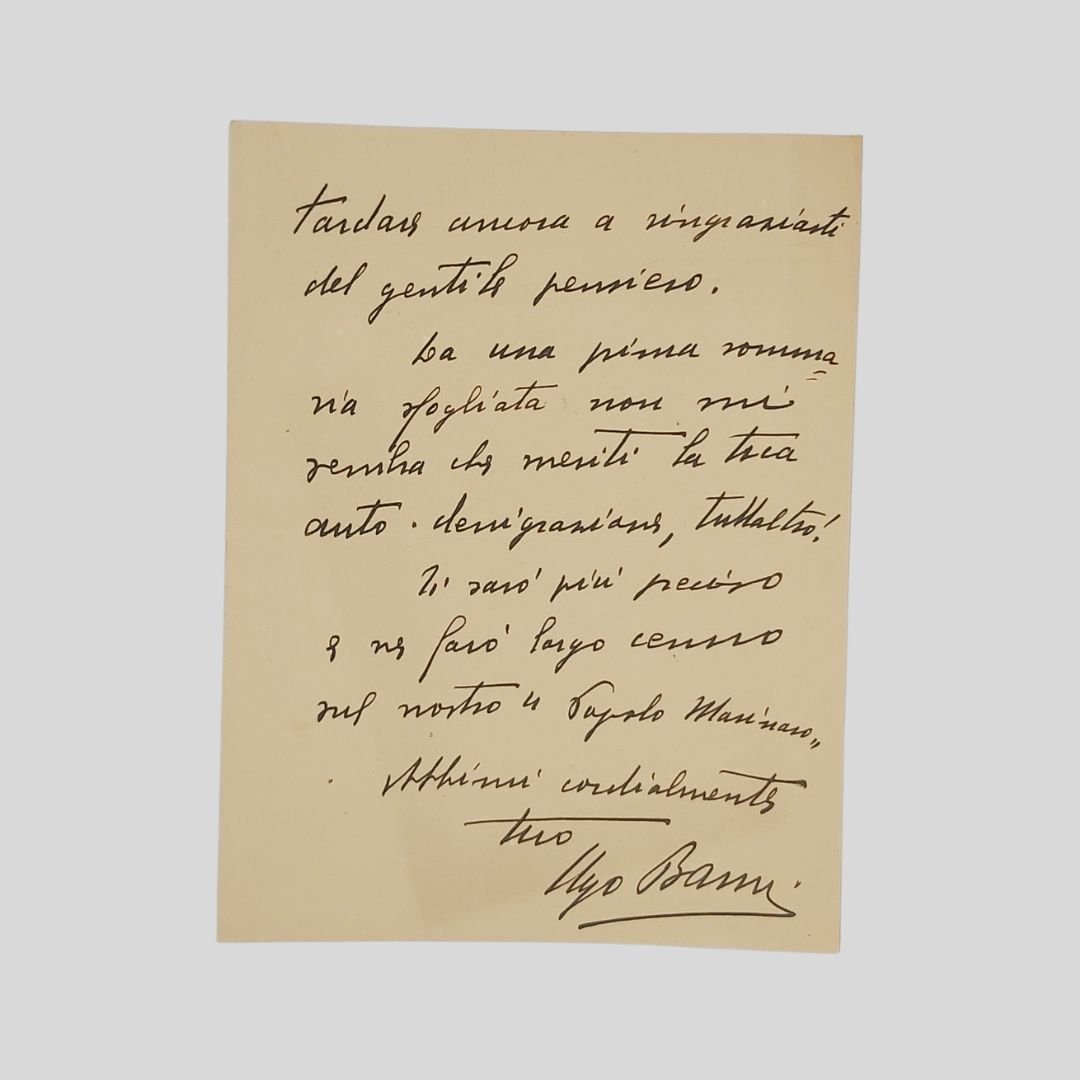 tardare ancora a ringraziarti
del gentile pensiero.
Da una prima somma=
ria sfogliata non mi
sembra che meriti la tua
auto-denigrazione, tuttaltro!
Ti sarò più preciso
e ne farò largo cenno
sul nostro "Popolo Marinaro"
Abbimi cordialmente
tuo
Ugo